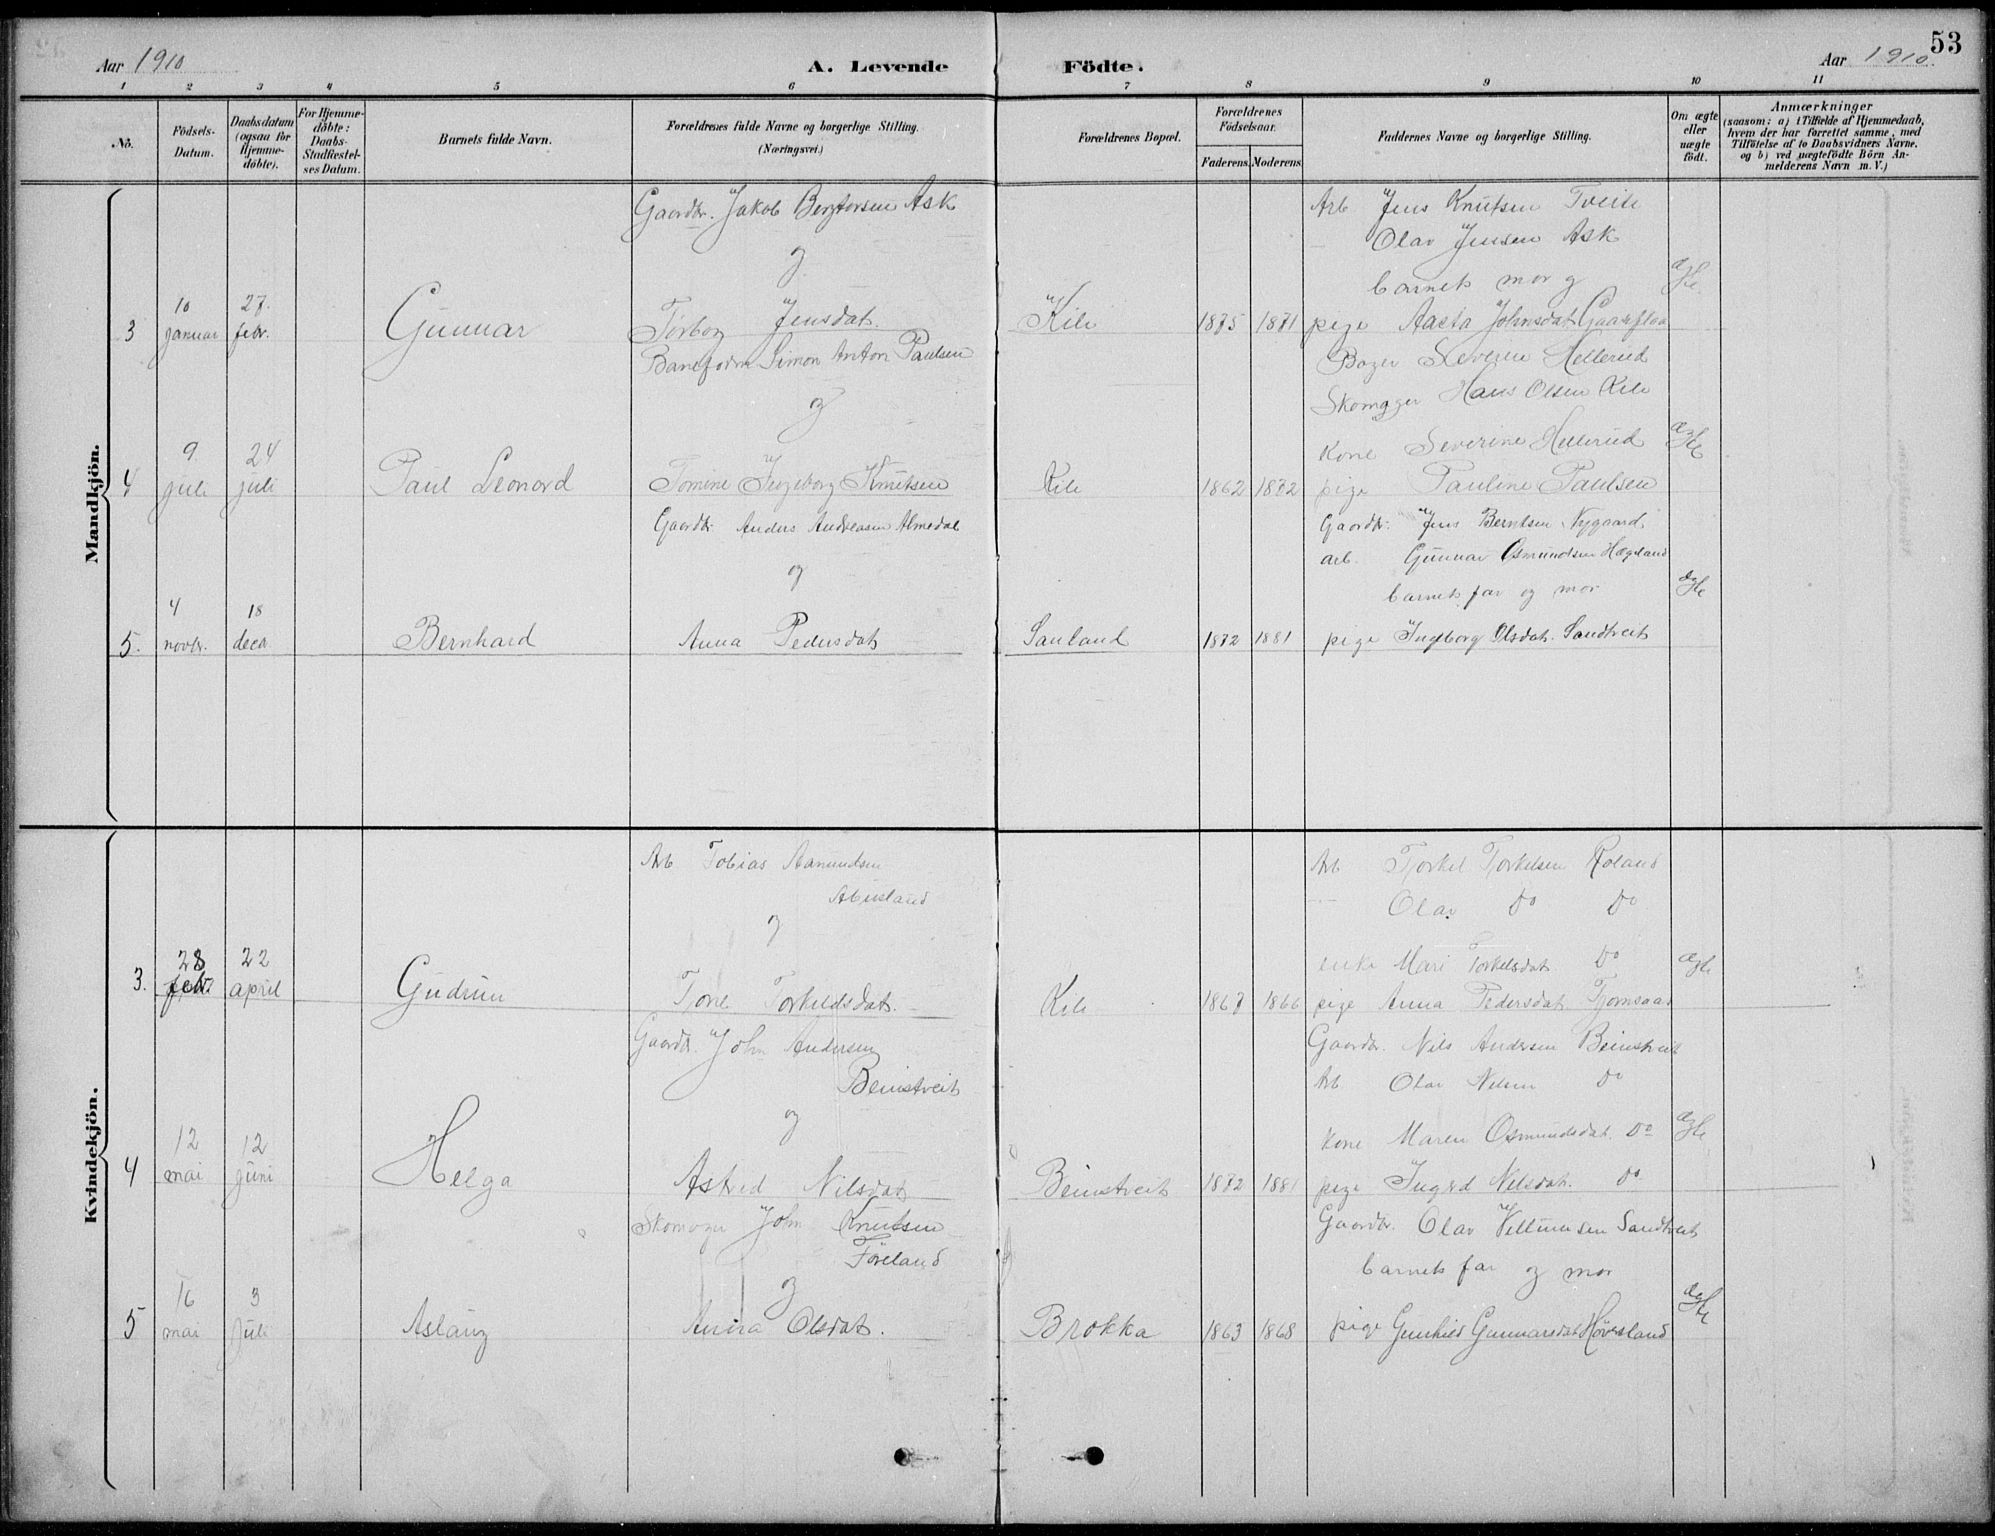 53
Aar 1910
A. Levende Födte.
Aar 1910.
1 2 3 4 5 6 7 8 9 10 11
No.
Födsels-Datum.
Daabsdatum (ogsaa for Hjemme-döbte).
For Hjemme-döbte: Daabs-Stadfæstel-ses Datum.
Barnets fulde Navn.
Forældrenes fulde Navne og borgerlige Stilling.
(Næringsvei.)
Forældrenes Bopæl.
Forældrenes Födselsaar.
Faderens. Moderens.
Faddernes Navne og borgerlige Stilling.
Om ægte eller uægte födt.
Anmærkninger
(saasom: a) i Tilfælde af Hjemmedaab,
hvem der har forrettet samme, med
Tilföielse af to Daabsvidners Navne.
og b) ved uægtefödte Börn An-
melderens Navn m. V.)
Mandkjön.
Gaardbr. Jakob Bergtorsen Ask
og
Torbog Jensdat.
3 10 januar 27. febr. Gunnar
Kile 1875 1871
Arb Jens Knutsen Tveite
Olav Jensen Ask
barnets mor og
pige Aasta Johnsdat.
ægte
Baneform Simon Anton Paulsen
og
Tomine Ingeborg Knutsen
4 9 juli 24 juli Paul Leonard
Kile 1862 1872
Severin Hellerud
Hans Olsen Kile
Kone Severine Hellerud
pige Pauline Paulsen
ægte
Gaardbr. Anders Andreasen Almedal
og
Anna Pedersdat
5. 4 novbr. 18 decb. Bernhard
Sauland 1872 1881
Gaardbr. Jens Berntsen Nygaard
arb. Gunnar Osmundsen Hægeland
barnets far og mor
pige Ingeborg Olsdat. Sandtveit
ægte
Kvindekjön.
Arb Tobias Aamundsen
Abusland
og
Tone Torkeldsdat.
3. 28 febr 22 april Gudrun
Kile 1867 1866
Arb Torkel Torkelsen Roland
Olav Do Do
enke Mari Torkelsdat. Do
pige Anna Pedersdat.
ægte
Gaardbr. John Andersen
Beinstveit
og
Astrid Nilsdat
4 12 mai 12 juni Helga
Beinstveit 1872 1881
Gaardbr. Nils Andersen Beinstveit
Arb Olav Nilsen Do
kone Maren Osmundsdat. Do
pige Ingrid Nilsdat. Do
ægte
Skomager John Knutsen
Föreland
og
Anna Olsdat.
5 16 mai 3 juli Aslaug
Brokka 1863 1868
Gaardbr. Olav Vellumsen Sandtveit
barnets far og mor
pige Gunhild Gunnarsdat Hövesland
ægte